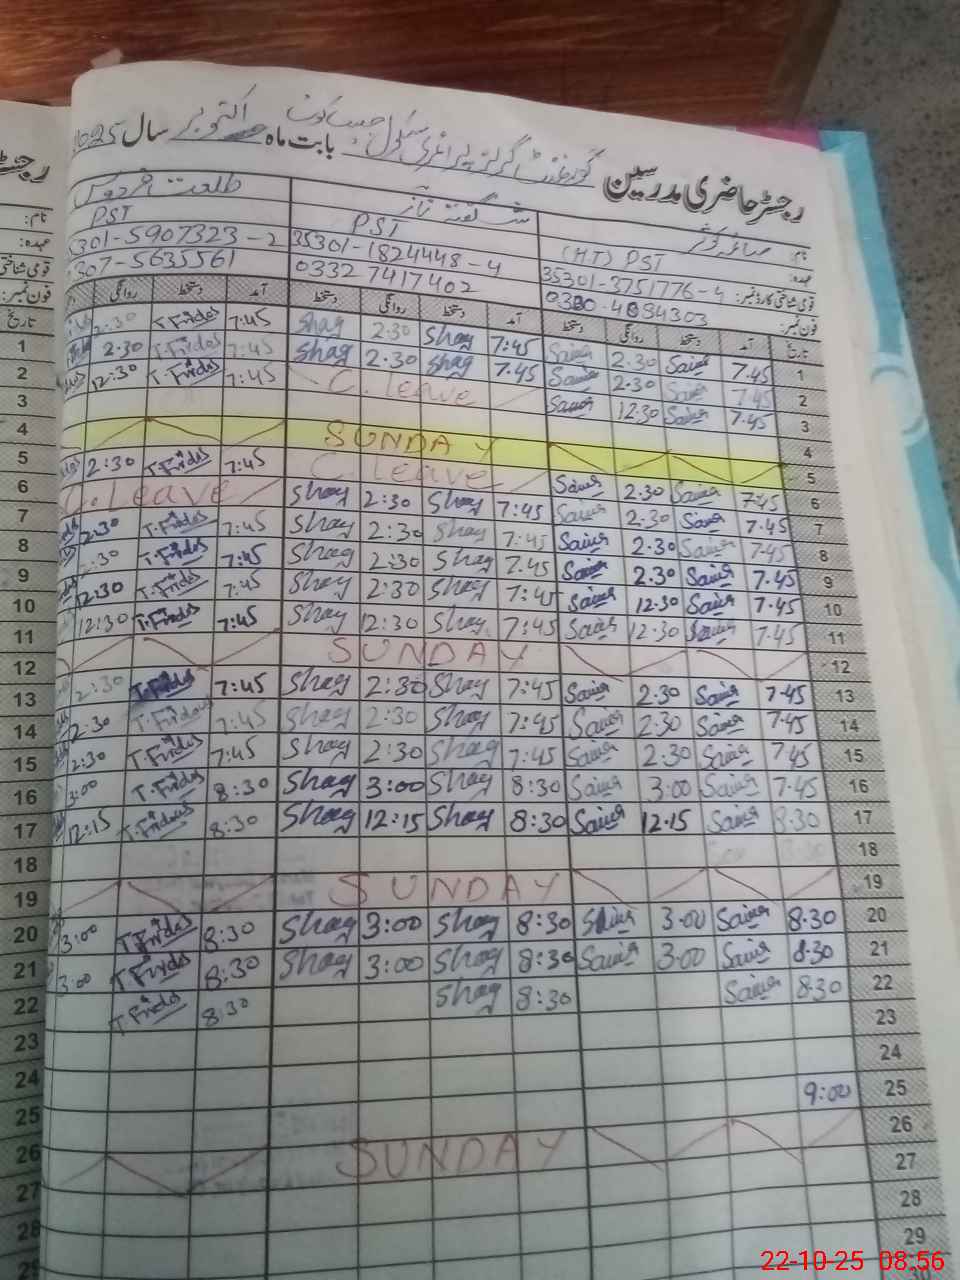 رجسٹر حاضری مدرسین گورنمنٹ گرلز پرائمری سکول بابت ماہ اکتوبر سال 2025
نام: صائمہ کوثر شگفتہ ناز طلعت فردوس
عہدہ: (H.T) PST PST PST
قومی شناختی کارڈ نمبر: 35301-3751776-4 35301-1824448-4 5301-5907323-2
فون نمبر: 0300-4034303 0332 7417402 307-5635561
تاریخ آمد دستخط روانگی دستخط آمد دستخط روانگی دستخط آمد دستخط روانگی تاریخ
1 7.45 Saima 2.30 Saima 7:45 Shag 2.30 Shag 7:45 T.Firdos 2:30 1
2 7.45 Saima 2.30 Saima 7.45 Shag 2.30 Shag 7:45 T.Firdos 2.30 2
3 7.45 Saima 12.30 Saima C. leave 7:45 T.Firdos 12:30 3
4 4
5 SUNDAY 5
6 7:45 Saima 2.30 Saima C. leave 7:45 T.Firdos 2:30 6
7 7.45 Saima 2.30 Saima 7:45 Shag 2:30 Shag C. Leave 7
8 7.45 Saima 2.30 Saima 7:45 Shag 2:30 Shag 7:45 T.Firdos 2:30 8
9 7.45 Saima 2.30 Saima 7.45 Shag 2:30 Shag 7:45 T.Firdos 2:30 9
10 7.45 Saima 12.30 Saima 7:45 Shag 2:30 Shag 7:45 T.Firdos 12:30 10
11 7.45 Saima 12.30 Saima 7:45 Shag 12:30 Shag 7:45 T.Firdos 12:30 11
12 SUNDAY 12
13 7.45 Saima 2.30 Saima 7:45 Shag 2:30 Shag 7:45 T.Firdos 2:30 13
14 7.45 Saima 2.30 Saima 7:45 Shag 2:30 Shag 7:45 T.Firdos 2:30 14
15 7.45 Saima 2.30 Saima 7:45 Shag 2:30 Shag 7:45 T.Firdos 2:30 15
16 7.45 Saima 3.00 Saima 8:30 Shag 3:00 Shag 8:30 T.Firdos 3:00 16
17 8.30 Saima 12.15 Saima 8:30 Shag 12:15 Shag 8:30 T.Firdos 12:15 17
18 18
19 SUNDAY 19
20 8.30 Saima 3.00 Saima 8:30 Shag 3:00 Shag 8:30 T.Firdos 3:00 20
21 8.30 Saima 3.00 Saima 8:30 Shag 3:00 Shag 8:30 T.Firdos 3:00 21
22 8.30 Saima 8:30 Shag 8:30 T.Firdos 22
23 23
24 24
25 9:00 25
26 SUNDAY 26
27 27
28 28
29 29
22-10-25 08:56